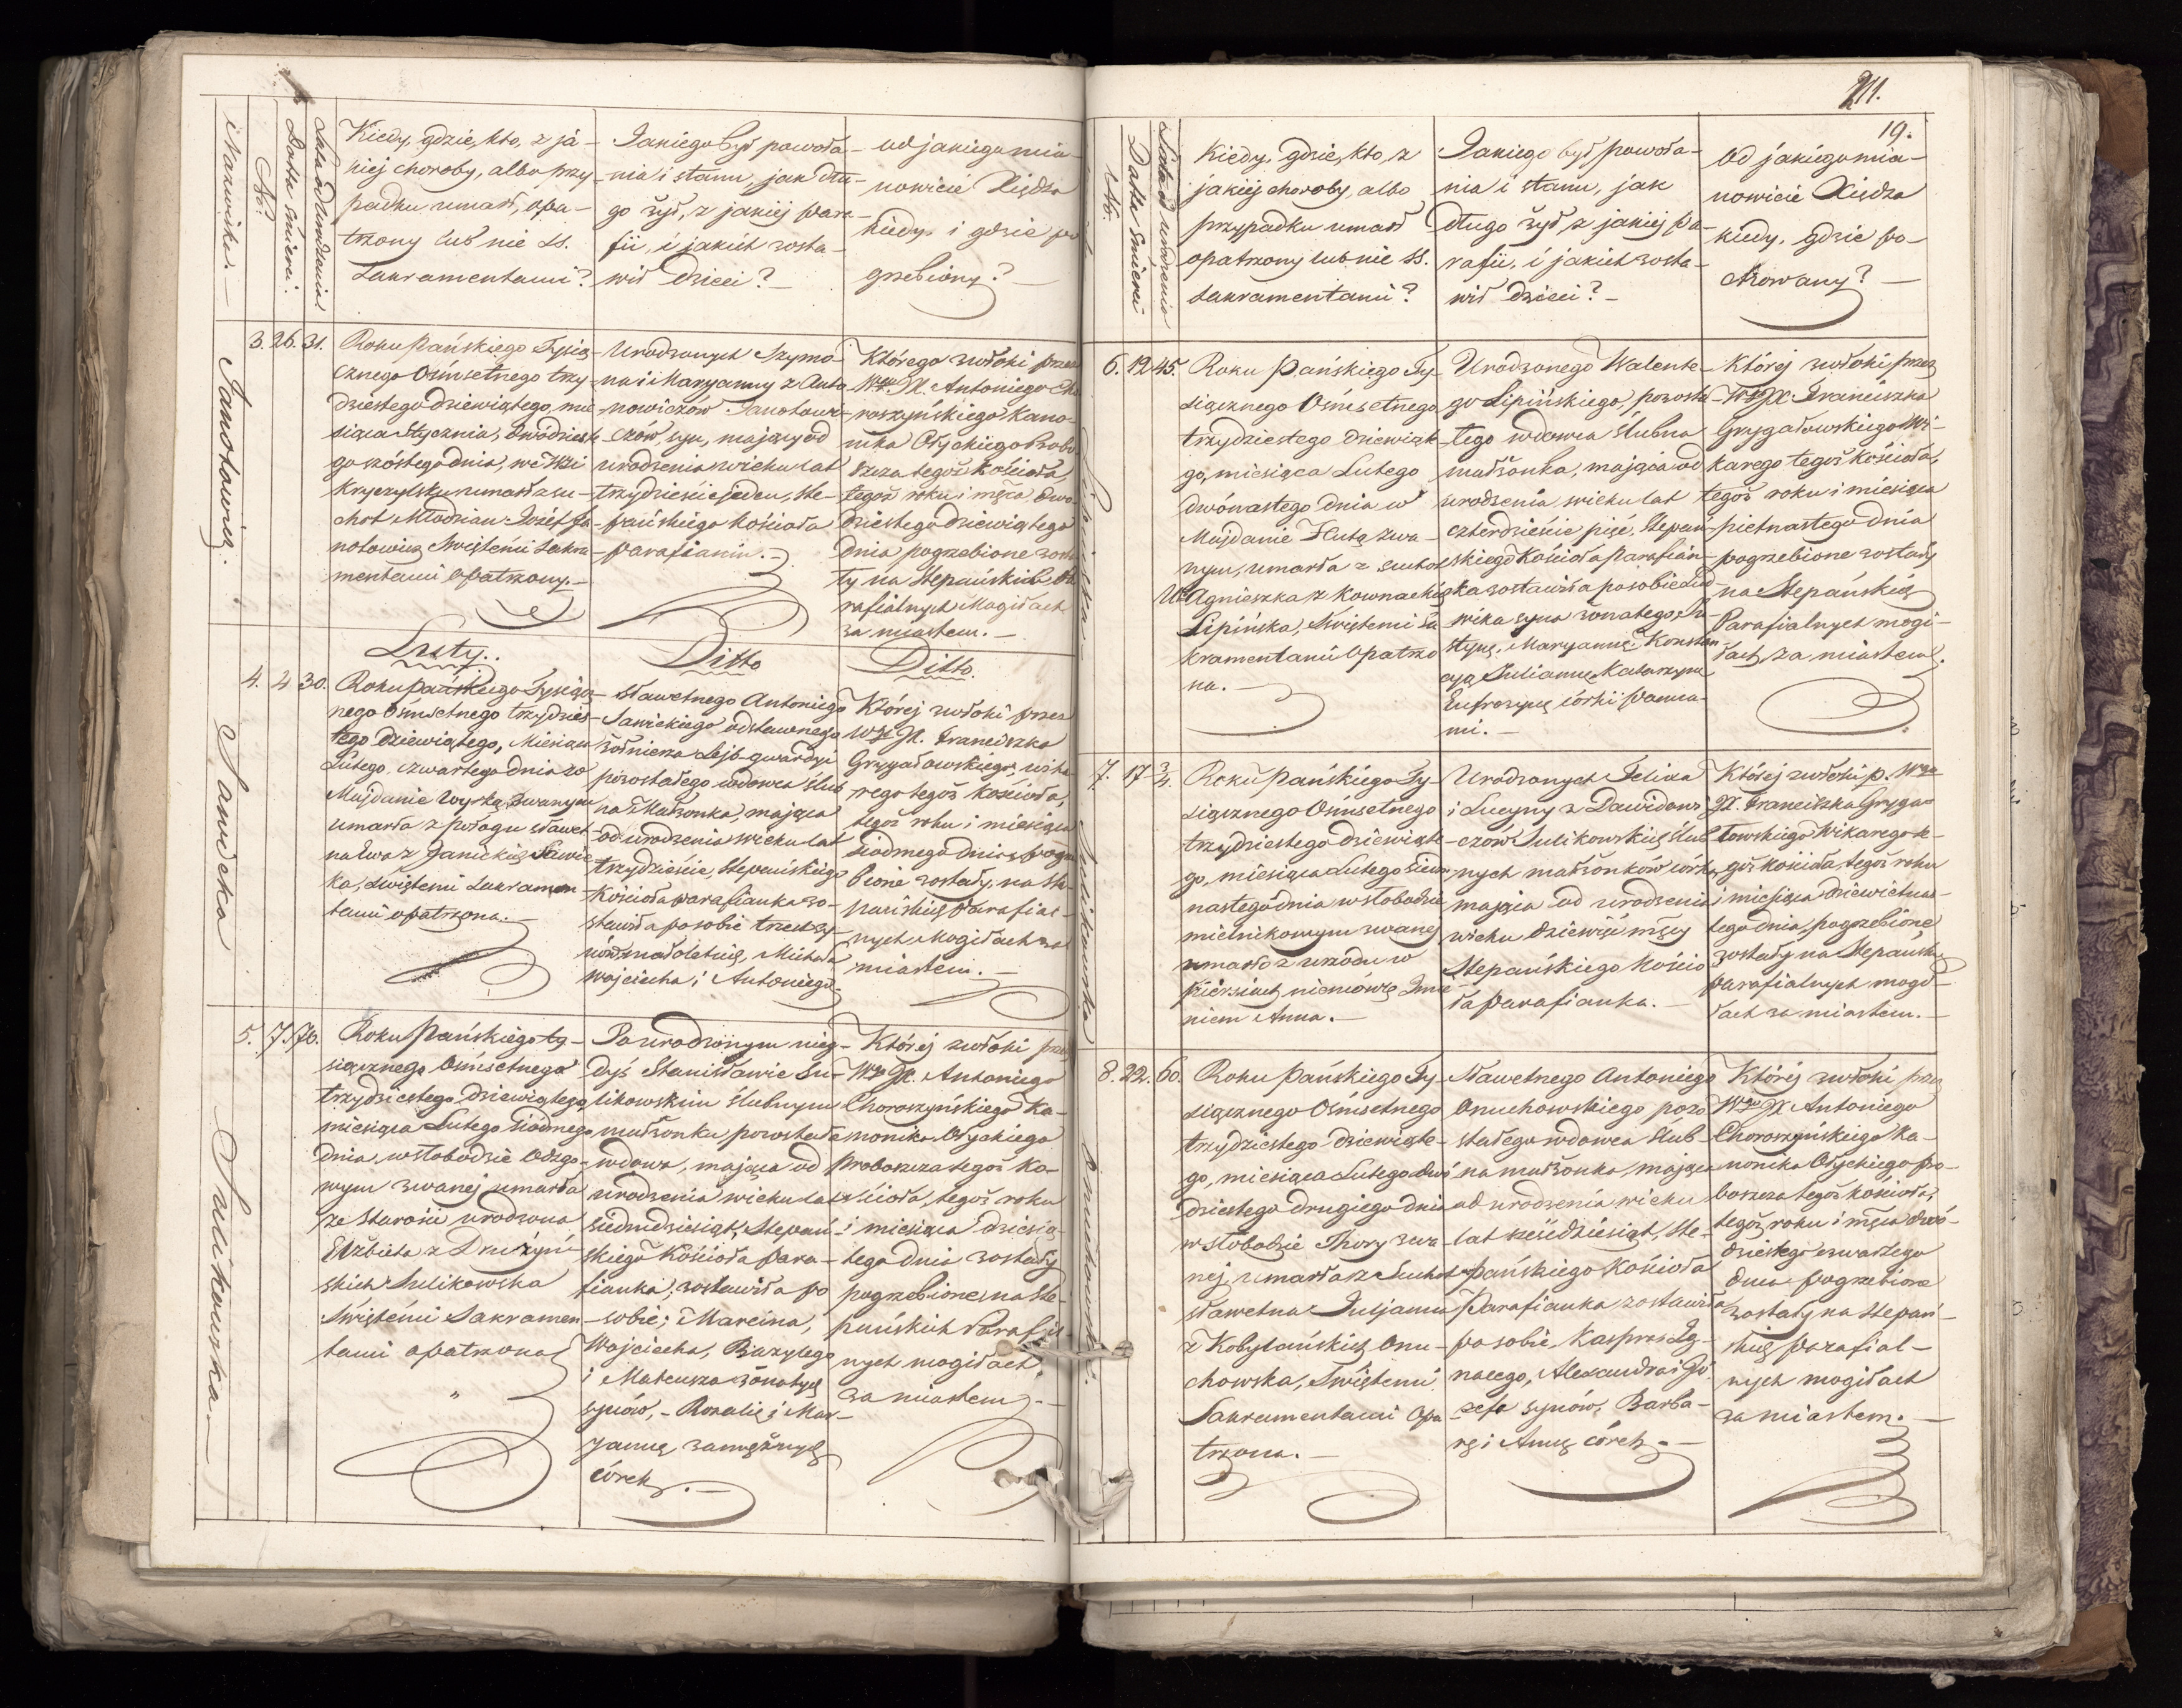 Nazwisko.
No.
Datta śmierci.
Lata od urodzenia
Kiedy, gdzie, kto, z ja-
kiej choroby, albo przy-
padku umarł, opa-
trzony lub nie SS.
Sakramentami?
Jakiego był powoła-
nia i stanu, jak dłu-
go żył, z jakiej para-
fii, i jakich zosta-
wił dzieci?
od jakiego mia-
nowicie Xiędza
kiedy, i gdzie po
grzebiony?
Janotowicz.
3. 26. 31.
Roku Pańskiego Tysią-
cznego Ośmsetnego trzy-
dziestego dziewiątego, mie-
siąca Stycznia, dwódzieste-
go szóstego dnia, we Wsi
Krzyczylsku umarł z su-
chot Młodzian Józef Ja-
notowicz Swiętemi Sakra-
mentami opatrzony.
Urodzonych Szymo-
na i Maryanny z Anto-
nowiczów Janotowi-
czów, syn, mający od
urodzenia wieku lat
trzydzieście jeden, Ste-
pańskiego Kościoła
parafianin.
Którego zwłoki przez
Wgo JX. Antoniego Cho
roszyńskiego Kano-
nika Ołyckiego Probo
szcza tegoż Kościoła,
tegoż roku i msca dwu
dziestego dziewiątego
dnia pogrzebione zosta
ły na Stepańskich Pa
rafialnych Mogiłach
za miastem.
Luty.
Ditto
Ditto.
Sawicka
4. 4 30.
Roku Pańskiego Tysiącz-
nego Ośmsetnego trzydzies-
tego dziewiątego, Miesiąca
Lutego, czwartego dnia w
Majdanie Wyrką zwanym
umarła z połogu sławet-
na Ewa z Janickich Sawic-
ka, Swiętemi Sakramen-
tami opatrzona.
Sławetnego Antoniego
Sawickiego odstawnego
żołnierza Lejb-gwardyi
pozostałego wdowca ślub
na Małżonka, mająca
od urodzenia wieku lat
trzydzieście, Stepańskiego
Kościoła parafianka zo-
stawiła po sobie trzech sy-
nów małoletnich, Michała
Wojciecha i Antoniego.
Której zwłoki przez
Wgo JX. Franciszka
Grygałowskiego, wika
rego tegoż kościoła,
tegoż roku i miesiąca
siódmego dnia pogrze
bione zostały, na Ste-
pańskich Parafial-
nych Mogiłach za
miastem.
Sulikowska
5. 7. 70.
Roku Pańskiego ty-
siącznego Ośmsetnego
trzydziestego dziewiątego
miesiąca Lutego siódmego
dnia, w słobodzie Odrgo-
wym zwanej umarła
ze starości urodzona
Elżbieta z Drużyń-
skich Sulikowska
Świętemi Sakramen-
tami opatrzona
Po urodzonym nieg-
dyś Stanisławie Su-
likowskim ślubnym
małżonku pozostała
wdowa, mająca od
urodzenia wieku lat
siedmdziesiąt, Stepań-
skiego Kościoła para-
fianka, zostawiła po
sobie; Marcina,
Wojciecha, Bazylego
i Mateusza żonatych
synów, - Rozalię i Mar-
yannę zamężnych
córek.
Której zwłoki prze
Wgo JX. Antoniego
Choroszyńskiego Ka-
nonika Ołyckiego
Proboszcza tegoż Ko-
ścioła, tegoż roku
i miesiąca dziesią-
tego dnia zostały
pogrzebione, na Ste-
pańskich Parafial-
nych mogiłach
za miastem.
211.
19.
No.
Datta śmierci
Lata od urodzenia
Kiedy, gdzie, kto, z
jakiej choroby, albo
przypadku umarł
opatrzony lub nie SS.
Sakramentami?
Jakiego był powoła-
nia i stanu, jak
długo żył, z jakiej pa-
rafii, i jakich zosta-
wił dzieci?
Od jakiego mia-
nowicie Xiędza
kiedy, gdzie po-
chowany?
6. 12 45.
Roku Pańskiego Ty-
siącznego Ośmsetnego
trzydziestego dziewiąte-
go, miesiąca Lutego
dwónastego dnia w
Majdanie Hutą zwa-
nym, umarła z suchot
Ur: Agnieszka z Kownackich
Lipińska, Swiętemi Sa
kramentami Opatrzo
na.
Urodzonego Walente-
go Lipińskiego, pozosta-
łego wdowca Ślubna
małżonka, mająca od
urodzenia wieku lat
czterdzieście pięć, Stepań-
skiego Kościoła Parafian-
ka zostawiła po sobie Lud-
wika syna żonatego, Ju-
stynę, Maryannę, Konstan-
cyą, Juliannę, Katarzynę
Eufrozynę córki panna-
mi.
Której zwłoki przez
Wgo JX Franciszka
Grygałowskiego Wi-
karego tegoż Kościoła,
tegoż roku i miesiąca
pietnastego dnia
pogrzebione zostały
na Stepańskich
Parafialnych mogi-
łach za miastem.
7. 17 3/4.
Roku Pańskiego Ty-
siącznego Ośmsetnego
trzydziestego dziewiąte-
go, miesiąca Lutego siedm
nastego dnia w słobodzie
mielnikowym zwanej
umarła z wrzodu w
piersiach niemówlę Imie-
niem Anna.
Urodzonych Felixa
i Lucyny z Dawidowi-
czów Sulikowskich ślub-
nych małżonków córka,
mająca od urodzenia
wieku dziewięć mscy
Stepańskiego Kościo
ła parafianka.
Której zwłoki p. Wgo
JX. Franciszka Gryga-
łowskiego Wikarego te-
goż kościoła tegoż roku
i miesiąca dziewietnas-
tego dnia pogrzebione
zostały na Stepańskich
parafialnych mogi-
łach za miastem.
Onuchowska.
8. 22. 60.
Roku Pańskiego Ty-
siącznego Ośmsetnego
trzydziestego dziewiąte-
go, miesiąca Lutego dwó
dziestego drugiego dnia
w słobodzie Thory zwa-
nej, umarła z Suchot
sławetna Juljanna
z Kobylańskich Onu-
chowska, Świętemi
Sakramentami Opa
trzona.
Sławetnego Antoniego
Onuchowskiego pozo
stałego wdowca Ślub-
na małżonka, mająca
od urodzenia wieku
lat sześćdziesiąt, Ste-
pańskiego Kościoła
Parafianka zostawiła
po sobie, Kaspra, Ig-
nacego, Alexandra i Jó-
zefa synów, Barba-
rę i Annę córek.
Której zwłoki przez
Wgo JX Antoniego
Choroszyńskiego Ka-
nonika Ołyckiego pro-
boszcza tegoż kościoła,
tegoż roku i msca dwó-
dziestego czwartego
dnia pogrzebione
zostały na Stepań-
skich parafial-
nych mogiłach
za miastem.